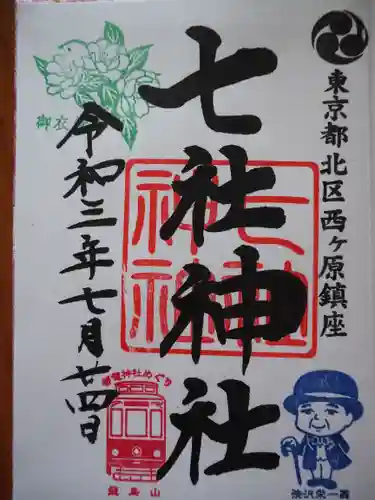 東京都北区西ヶ原鎮座
七社神社
七社
神社
御衣
令和三年七月廿四日
神社めぐり
飛鳥山
渋沢栄一翁